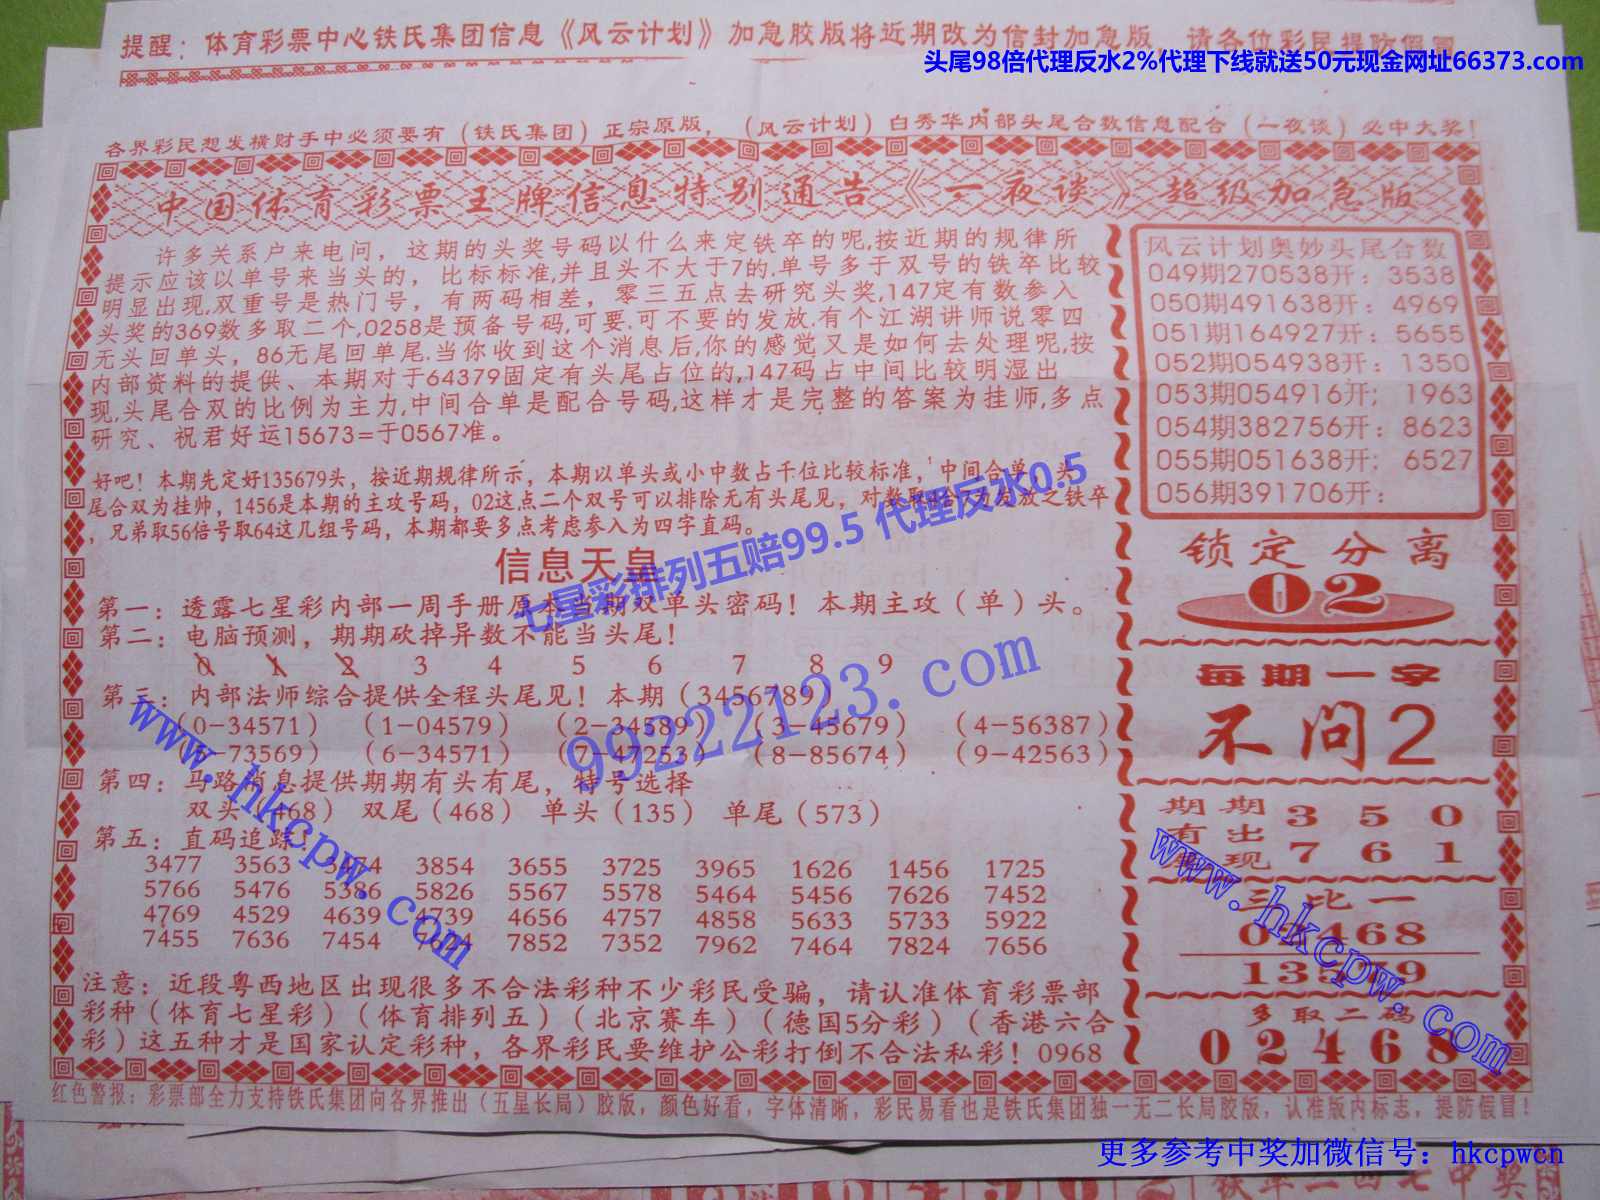 提醒：体育彩票中心铁氏集团信息《风云计划》加急胶版将近期改为信封加急版，请各位彩民提防假冒
头尾98倍代理反水2%代理下线就送50元现金网址66373.com
各界彩民想发横财手中必须要有（铁氏集团）正宗原版，（风云计划）白秀华内部头尾合数信息配合（一夜谈）必中大奖！
中国体育彩票王牌信息特别通告《一夜谈》超级加急版
许多关系户来电问，这期的头奖号码以什么来定铁卒的呢,按近期的规律所
提示应该以单号来当头的，比标标准,并且头不大于7的.单号多于双号的铁卒比较
明显出现,双重号是热门号，有两码相差，零三五点去研究头奖,147定有数参入
头奖的369数多取二个,0258是预备号码,可要.可不要的发放.有个江湖讲师说零四
无头回单头，86无尾回单尾.当你收到这个消息后,你的感觉又是如何去处理呢,按
内部资料的提供、本期对于64379固定有头尾占位的,147码占中间比较明湿出
现,头尾合双的比例为主力,中间合单是配合号码,这样才是完整的答案为挂师,多点
研究、祝君好运15673=于0567准。
好吧！本期先定好135679头，按近期规律所示，本期以单头或小中数占千位比较标准，中间合单、头
尾合双为挂帅，1456是本期的主攻号码，02这点二个双号可以排除无有头尾见，对数取
为发放之铁卒
，兄弟取56倍号取64这几组号码，本期都要多点考虑参入为四字直码。
七星彩排列五赔99.5 代理反水0.5
信息天皇
第一：透露七星彩内部一周手册原本当期双单头密码！本期主攻（单）头。
第二：电脑预测，期期砍掉异数不能当头尾！
0 1 2 3 4 5 6 7 8 9
第三：内部法师综合提供全程头尾见！本期（3456789）
（0-34571）（1-04579）（2-34589）（3-45679）（4-56387）
（5-73569）（6-34571）（7-47253）（8-85674）（9-42563）
99222123.com
第四：马路消息提供期期有头有尾，特号选择
双头（468） 双尾（468） 单头（135） 单尾（573）
第五：直码追踪！
3477 3563 3854 3655 3725 3965 1626 1456 1725
5766 5476 5386 5826 5567 5578 5464 5456 7626 7452
4769 4529 4639 4739 4656 4757 4858 5633 5733 5922
7455 7636 7454 7852 7352 7962 7464 7824 7656
www.hkcpw.com
注意：近段粤西地区出现很多不合法彩种不少彩民受骗，请认准体育彩票部
彩种（体育七星彩）（体育排列五）（北京赛车）（德国5分彩）（香港六合
彩）这五种才是国家认定彩种，各界彩民要维护公彩打倒不合法私彩！0968
风云计划奥妙头尾合数
049期270538开：3538
050期491638开：4969
051期164927开：5655
052期054938开：1350
053期054916开：1963
054期382756开：8623
055期051638开：6527
056期391706开：
锁定分离
02
每期一字
不问2
期期 3 5 0
有出
展现 7 6 1
www.hkcpw.com
三比一
02468
13579
多取二码
02468
红色警报：彩票部全力支持铁氏集团向各界推出（五星长局）胶版，颜色好看，字体清晰，彩民易看也是铁氏集团独一无二长局胶版，认准版内标志，提防假冒！
更多参考中奖加微信号：hkcpwcn